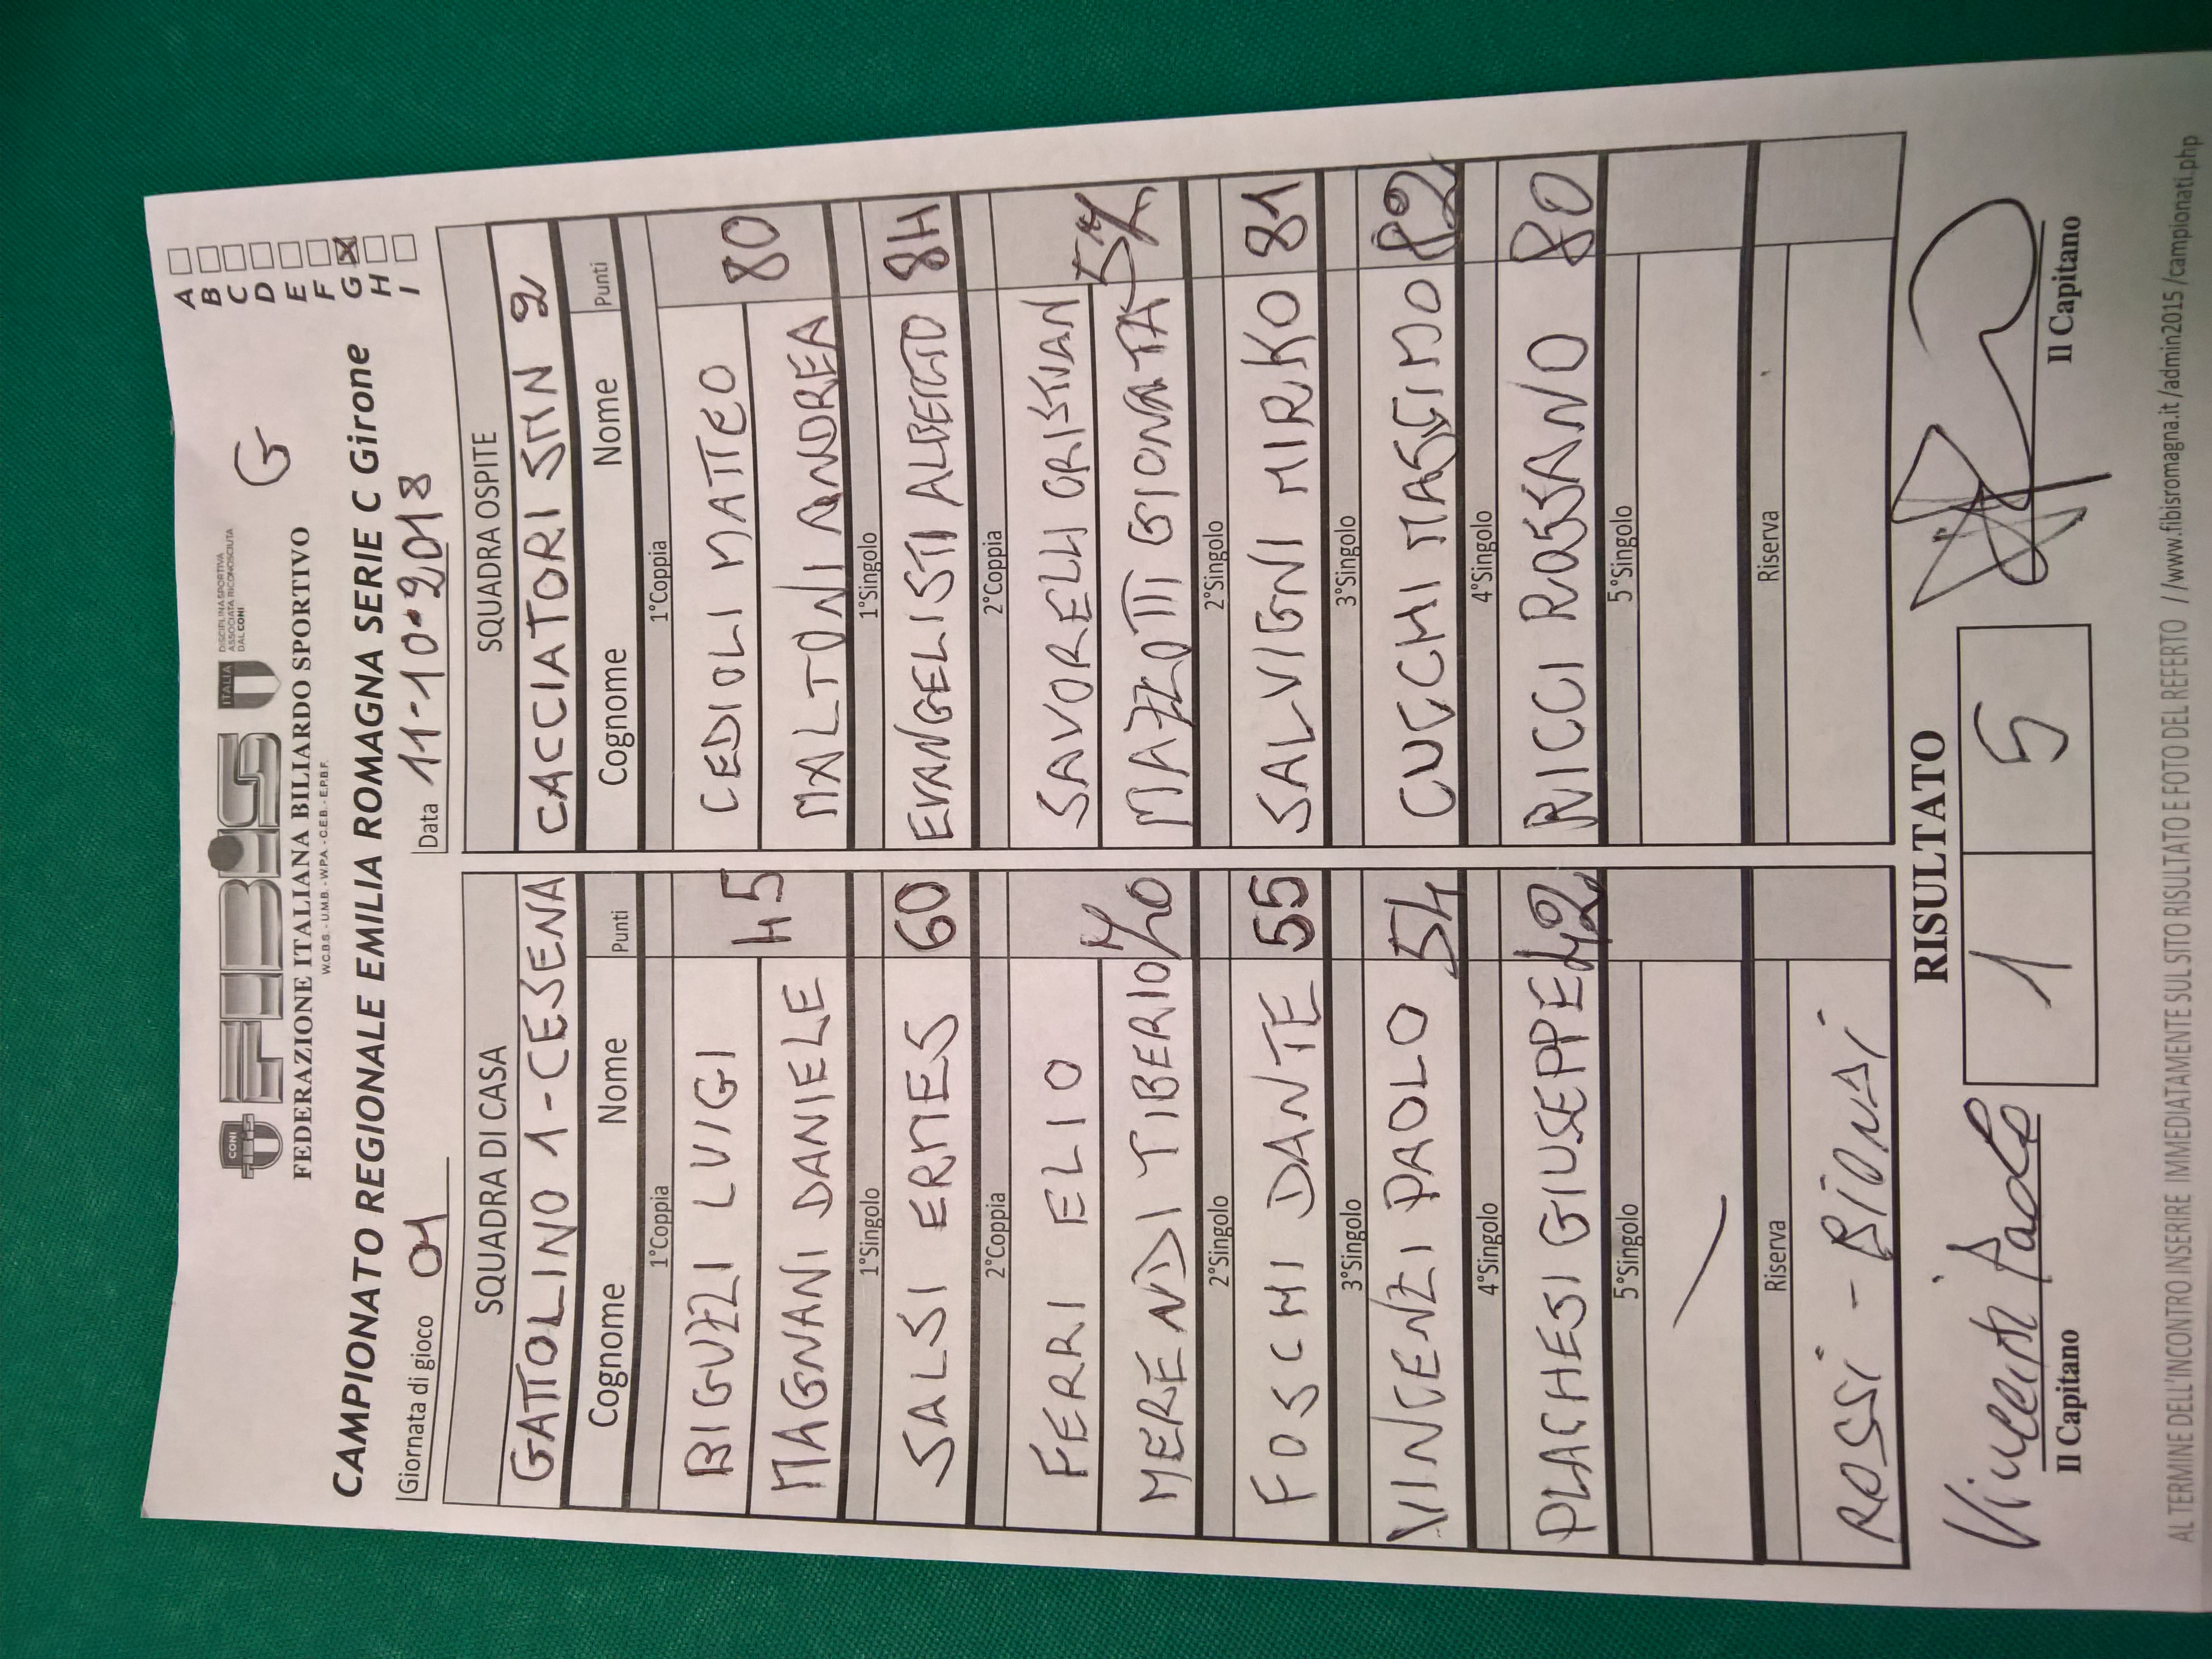 CONI
FIBIS
ITALIA
DISCIPLINA SPORTIVA
ASSOCIATA RICONOSCIUTA
DAL CONI
G
FEDERAZIONE ITALIANA BILIARDO SPORTIVO
W.C.B.S. - U.M.B. - W.P.A. - C.E.B. - E.P.B.F.
CAMPIONATO REGIONALE EMILIA ROMAGNA SERIE C Girone
A
B
C
D
E
F
G X
H
I
Giornata di gioco 01 Data 11-10-2018
SQUADRA DI CASA SQUADRA OSPITE
GATTOLINO 1-CESENA CACCIATORI SMN 2
Cognome Nome Punti Cognome Nome Punti
1°Coppia 1°Coppia
BIGUZZI LUIGI CEDIOLI MATTEO
45 80
MAGNANI DANIELE MALTONI ANDREA
1°Singolo 1°Singolo
SALSI ERMES 60 EVANGELISTI ALBERTO 84
2°Coppia 2°Coppia
FERRI ELIO SAVORELLI CRISTIAN
MERENDI TIBERIO MAZZOTTI GIONATA
2°Singolo 2°Singolo
FOSCHI DANTE 55 SALVIGNI MIRKO 81
3°Singolo 3°Singolo
VINCENZI PAOLO 54 CUCCHI MASSIMO 82
4°Singolo 4°Singolo
PLACHESI GIUSEPPE 42 RICCI ROSSANO 80
5°Singolo 5°Singolo
Riserva Riserva
ROSSI - BIONDI
RISULTATO
1 5
Vincenzi Paolo
Il Capitano Il Capitano
AL TERMINE DELL'INCONTRO INSERIRE IMMEDIATAMENTE SUL SITO RISULTATO E FOTO DEL REFERTO //www.fibisromagna.it/admin2015/campionati.php